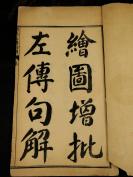 繪圖增批
左傳句解